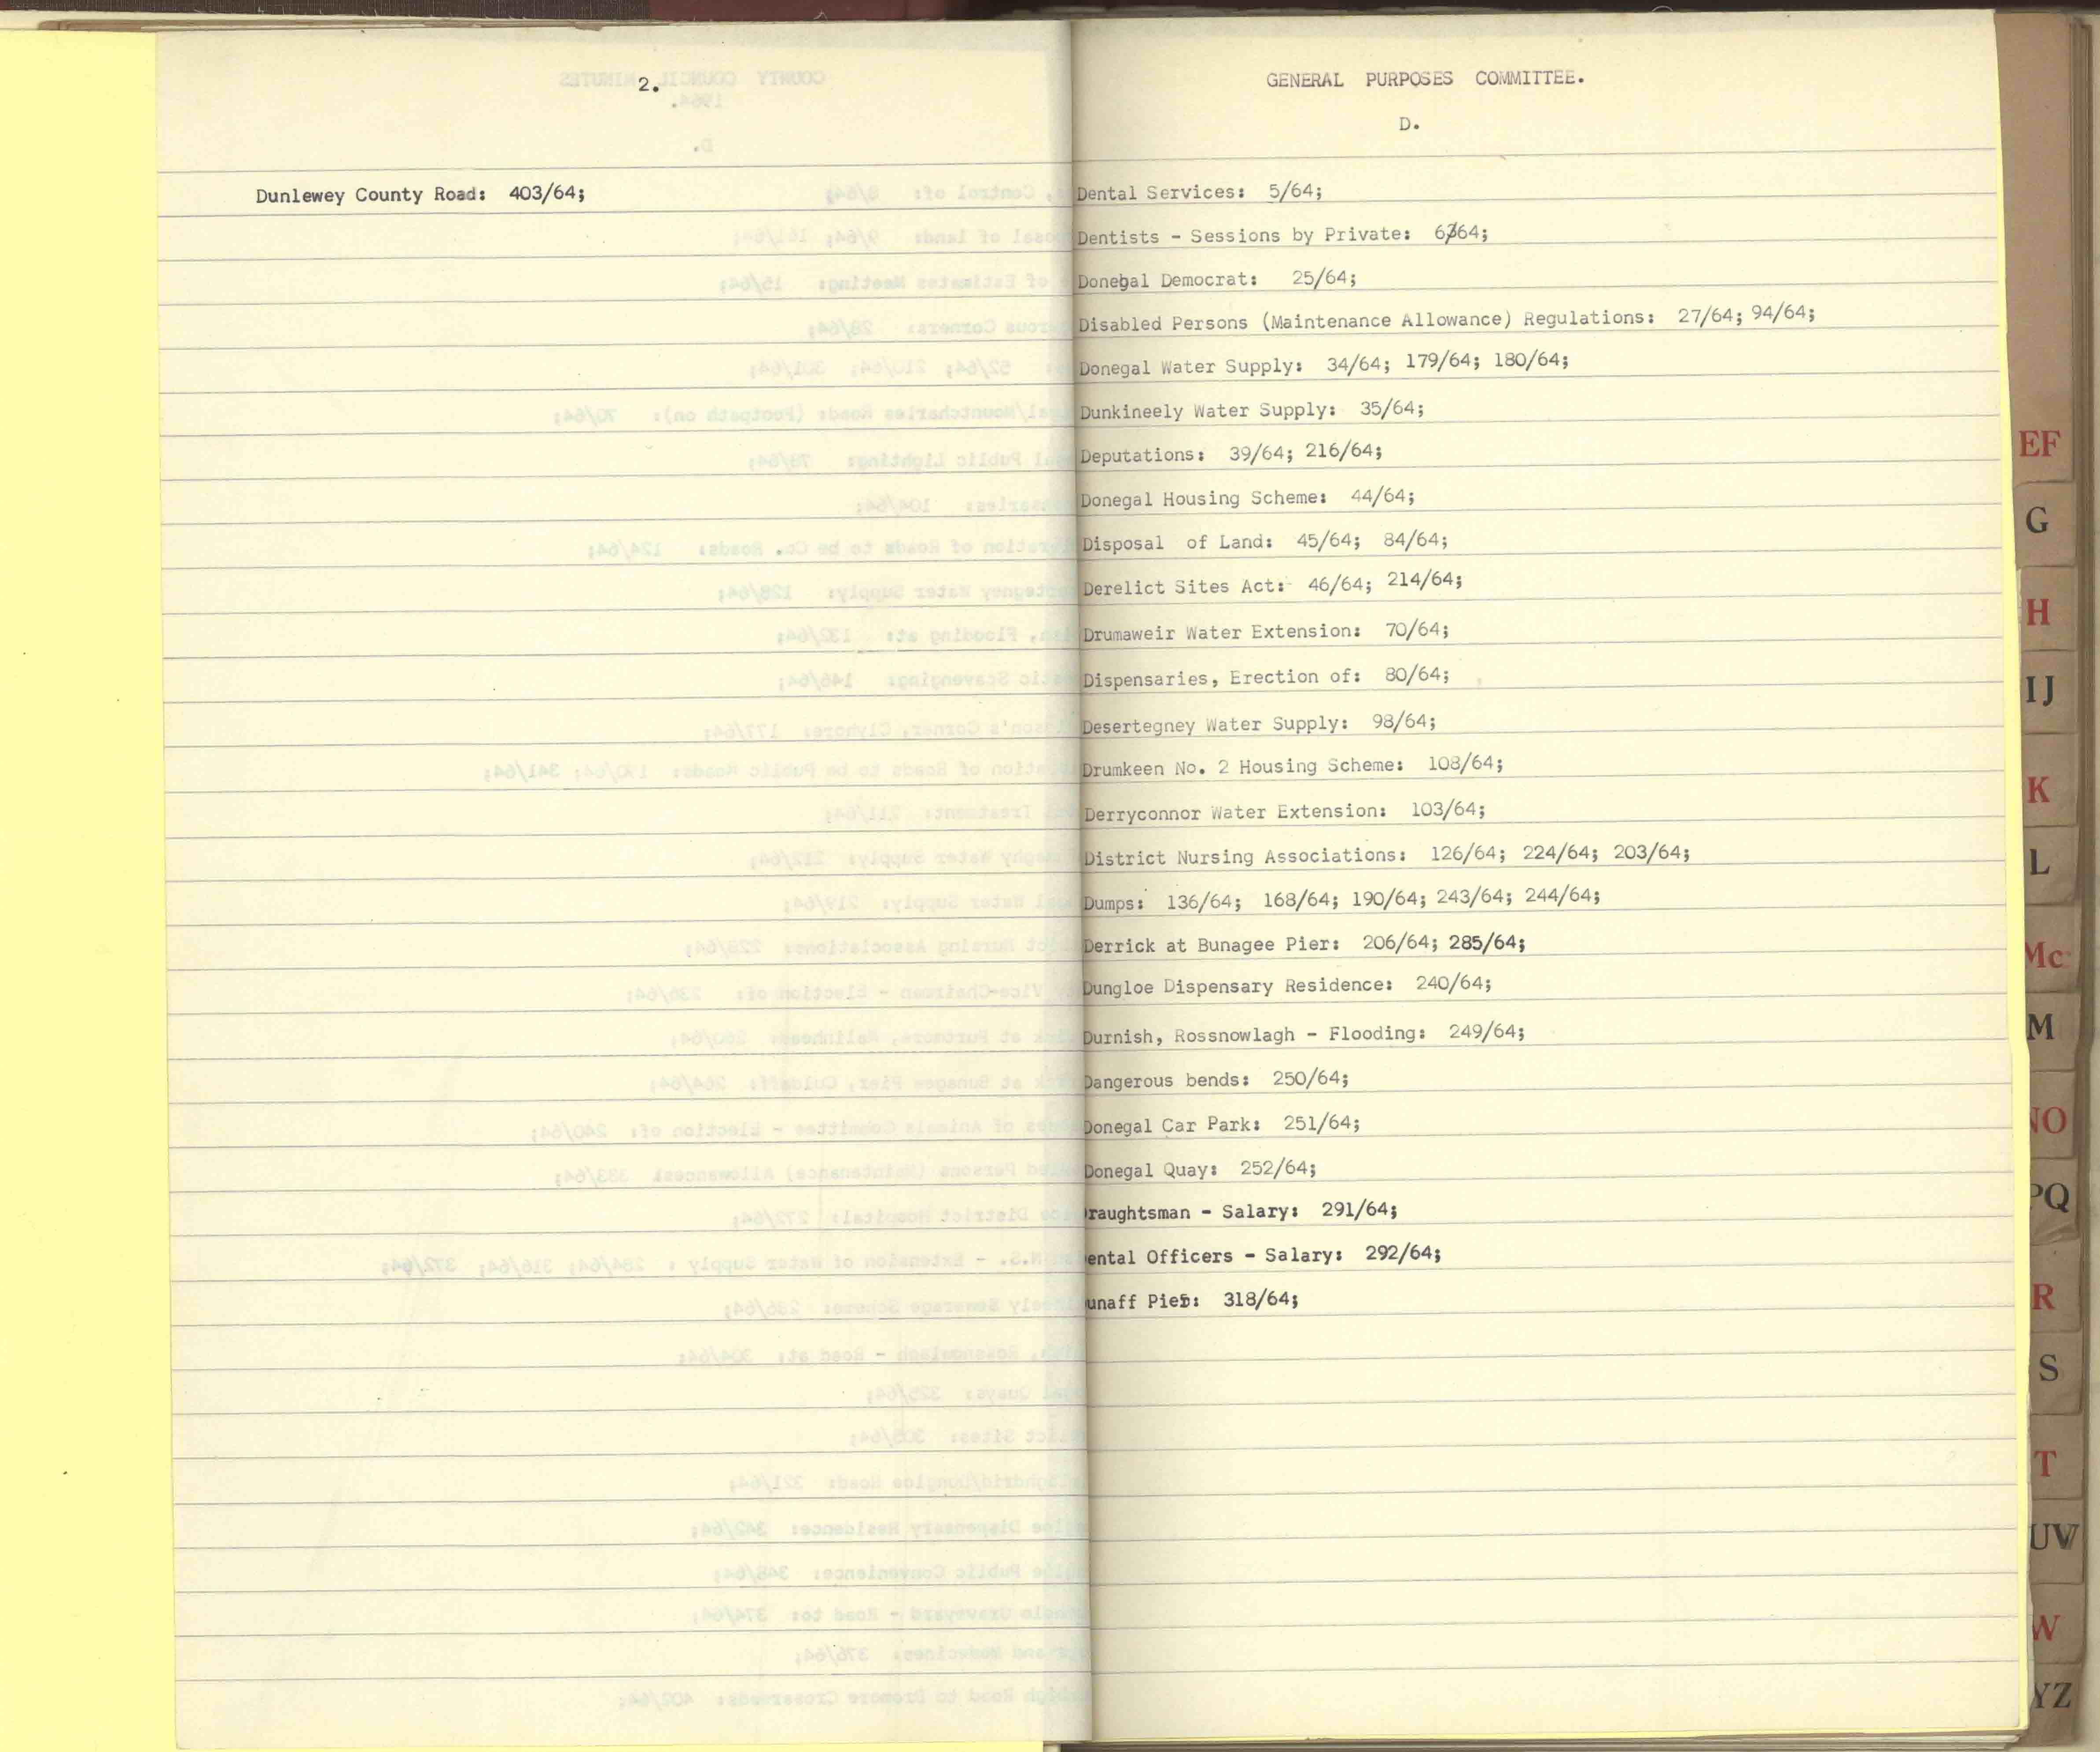 2.
Dunlewey County Road: 403/64;
GENERAL PURPOSES COMMITTEE.
D.
Dental Services: 5/64;
Dentists - Sessions by Private: 6/64;
Donegal Democrat: 25/64;
Disabled Persons (Maintenance Allowance) Regulations: 27/64; 94/64;
Donegal Water Supply: 34/64; 179/64; 180/64;
Dunkineely Water Supply: 35/64;
Deputations: 39/64; 216/64;
Donegal Housing Scheme: 44/64;
Disposal of Land: 45/64; 84/64;
Derelict Sites Act: 46/64; 214/64;
Drumaweir Water Extension: 70/64;
Dispensaries, Erection of: 80/64;
Desertegney Water Supply: 98/64;
Drumkeen No. 2 Housing Scheme: 108/64;
Derryconnor Water Extension: 103/64;
District Nursing Associations: 126/64; 224/64; 203/64;
Dumps: 136/64; 168/64; 190/64; 243/64; 244/64;
Derrick at Bunagee Pier: 206/64; 285/64;
Dungloe Dispensary Residence: 240/64;
Durnish, Rossnowlagh - Flooding: 249/64;
Dangerous bends: 250/64;
Donegal Car Park: 251/64;
Donegal Quay: 252/64;
raughtsman - Salary: 291/64;
ental Officers - Salary: 292/64;
unaff Pier: 318/64;
EF
G
H
IJ
K
L
Mc
M
NO
PQ
R
S
T
UV
W
YZ